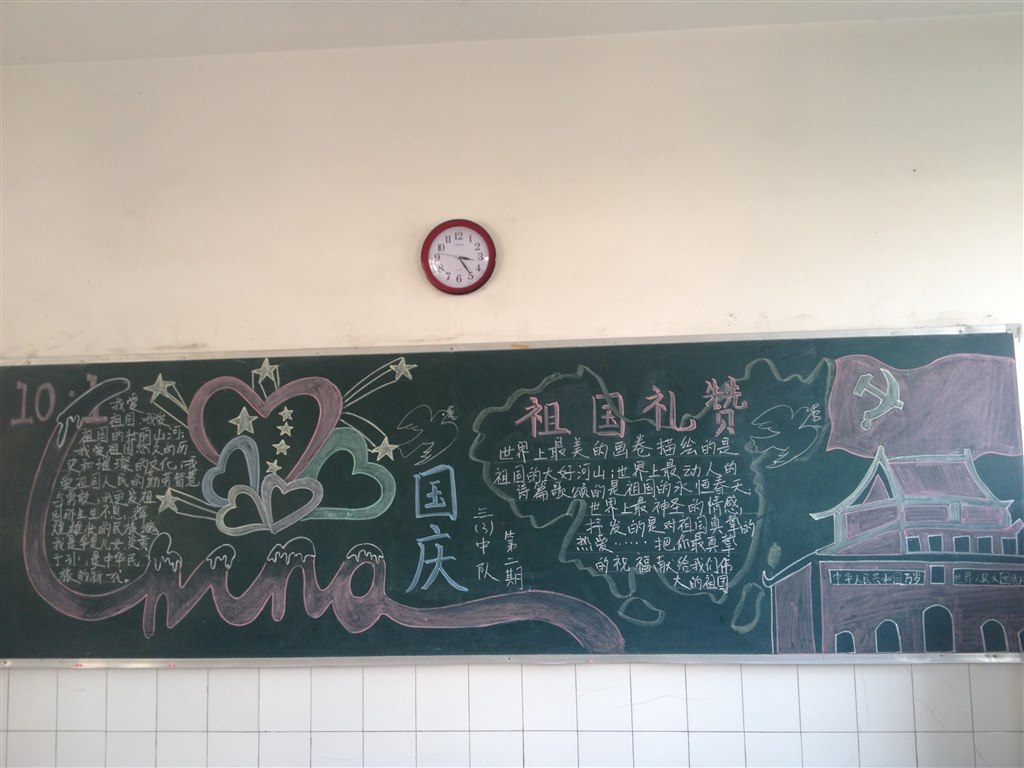 10·1
我爱
祖国的
我爱祖国悠久的历
史和璀璨的文化,我
爱祖国人民的勤劳智慧
于小
是中华民
族的新一代。
China
国庆
三(3)中队
第二期
祖国礼赞
世界上最美的画卷描绘的是
祖国的大好河山;世界上最动人的
诗篇歌颂的是祖国的永恒春天,
世界上最神圣的情感,
抒发的是对祖国真挚的
热爱……把你最真挚
的祝福献给我们伟
大的祖国
中华人民共和国万岁
世界人民大团结万
12
1
2
3
4
5
6
7
8
9
10
11